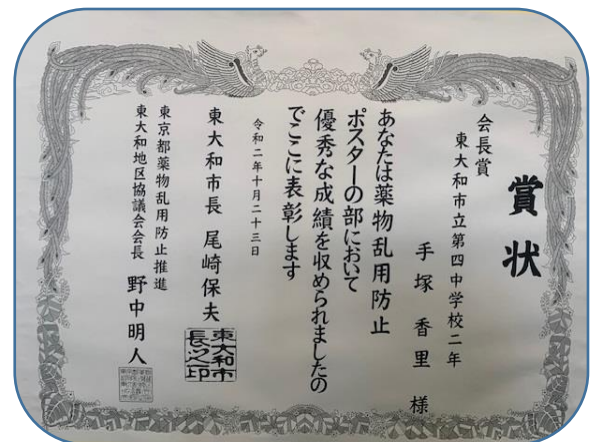 賞状
会長賞
東大和市立第四中学校二年
手塚香里 様
あなたは薬物乱用防止
ポスターの部において
優秀な成績を収められましたの
でここに表彰します
令和二年十月二十三日
東大和市長 尾崎保夫
東大和市長之印
東京都薬物乱用防止推進
東大和地区協議会会長 野中明人